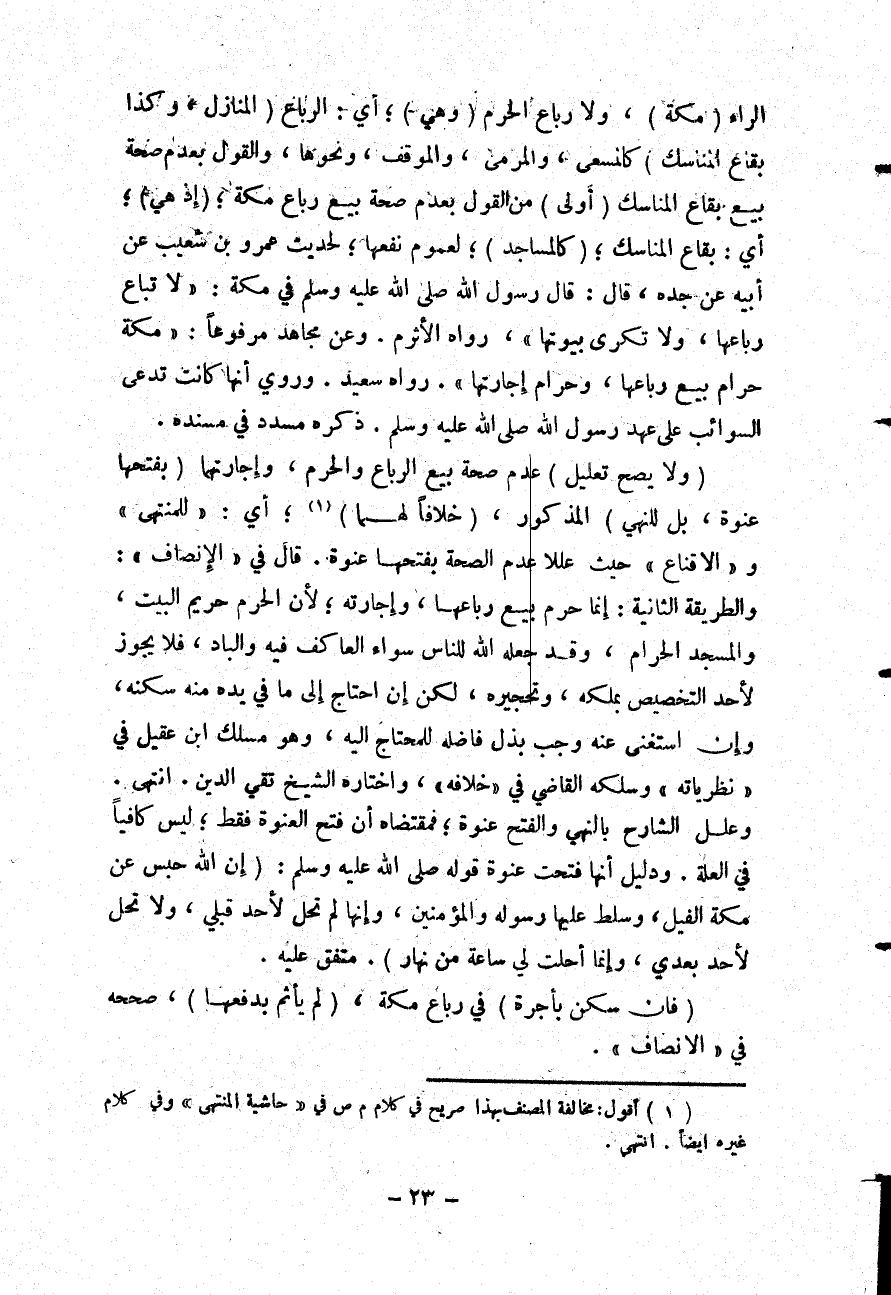 الراء ( مكة ) ، ولا رباع الحرم ( وهي ) ؛ أي : الرباع ( المنازل ، وكذا
بقاع المناسك ) كالمسعى ، والمرمى ، والموقف ، ونحوها ، والقول بعدم صحة
بيع بقاع المناسك ( أولى ) من القول بعدم صحة بيع رباع مكة ؛ ( إذ هي ) ؛
أي : بقاع المناسك ؛ ( كالمساجد ) ؛ لعموم نفعها ؛ لحديث عمرو بن شعيب عن
أبيه عن جده ، قال : قال رسول الله صلى الله عليه وسلم في مكة : « لا تباع
رباعها ، ولا تكرى بيوتها » ، رواه الأثرم . وعن مجاهد مرفوعاً : « مكة
حرام بيع رباعها ، وحرام إجارتها » . رواه سعيد . وروي أنها كانت تدعى
السوائب على عهد رسول الله صلى الله عليه وسلم . ذكره مسدد في مسنده .
( ولا يصح تعليل ) عدم صحة بيع الرباع والحرم ، وإجارتها ( بفتحها
عنوة ، بل للنهي ) المذكور ، ( خلافاً لهما ) (١) ؛ أي : « للمنتهى »
و « الاقناع » حيث عللا عدم الصحة بفتحها عنوة . قال في « الإنصاف » :
والطريقة الثانية : إنما حرم بيع رباعها ، وإجارته ؛ لأن الحرم حريم البيت ،
والمسجد الحرام ، وقد جعله الله للناس سواء العاكف فيه والباد ، فلا يجوز
لأحد التخصيص بملكه ، وتحجيره ، لكن إن احتاج إلى ما في يده منه سكنه ،
وإن استغنى عنه وجب بذل فاضله للمحتاج اليه ، وهو مسلك ابن عقيل في
« نظرياته » وسلكه القاضي في «خلافه» ، واختاره الشيخ تقي الدين . انتهى .
وعلل الشارح بالنهي والفتح عنوة ؛ فمقتضاه أن فتح العنوة فقط ؛ ليس كافياً
في العلة . ودليل أنها فتحت عنوة قوله صلى الله عليه وسلم : ( إن الله حبس عن
مكة الفيل ، وسلط عليها رسوله والمؤمنين ، وإنها لم تحل لأحد قبلي ، ولا تحل
لأحد بعدي ، وإنما أحلت لي ساعة من نهار ) . متفق عليه .
( فان سكن بأجرة ) في رباع مكة ، ( لم يأثم بدفعها ) ، صححه
في « الانصاف » .
( ١ ) أقول : مخالفة المصنف بهذا صريح في كلام م ص في « حاشية المنتهى » وفي كلام
غيره ايضاً . انتهى .
– ٢٣ –